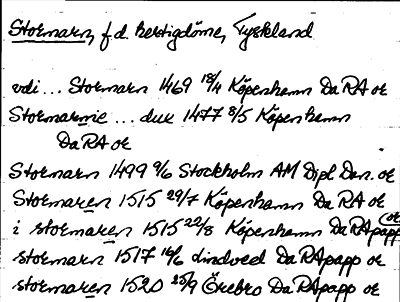 Stormarn, f.d. hertigdöme, Tyskland
vdi... Stormarn 1469 18/4 Köpenhamn DaRA or
Stormarnie ... dux 1477 8/5 Köpenhamn
DaRA or
Stormarn 1499 9/6 Stockholm AM Dipl Dan. or
Stormaren 1515 29/7 Köpenhamn DaRA or
i stormaren 1515 22/8 Köpenhamn DaRApapp or
stormarn 1517 16/6 dindved DaRApapp or
stormaren 1520 25/9 Örebro DaRApapp or